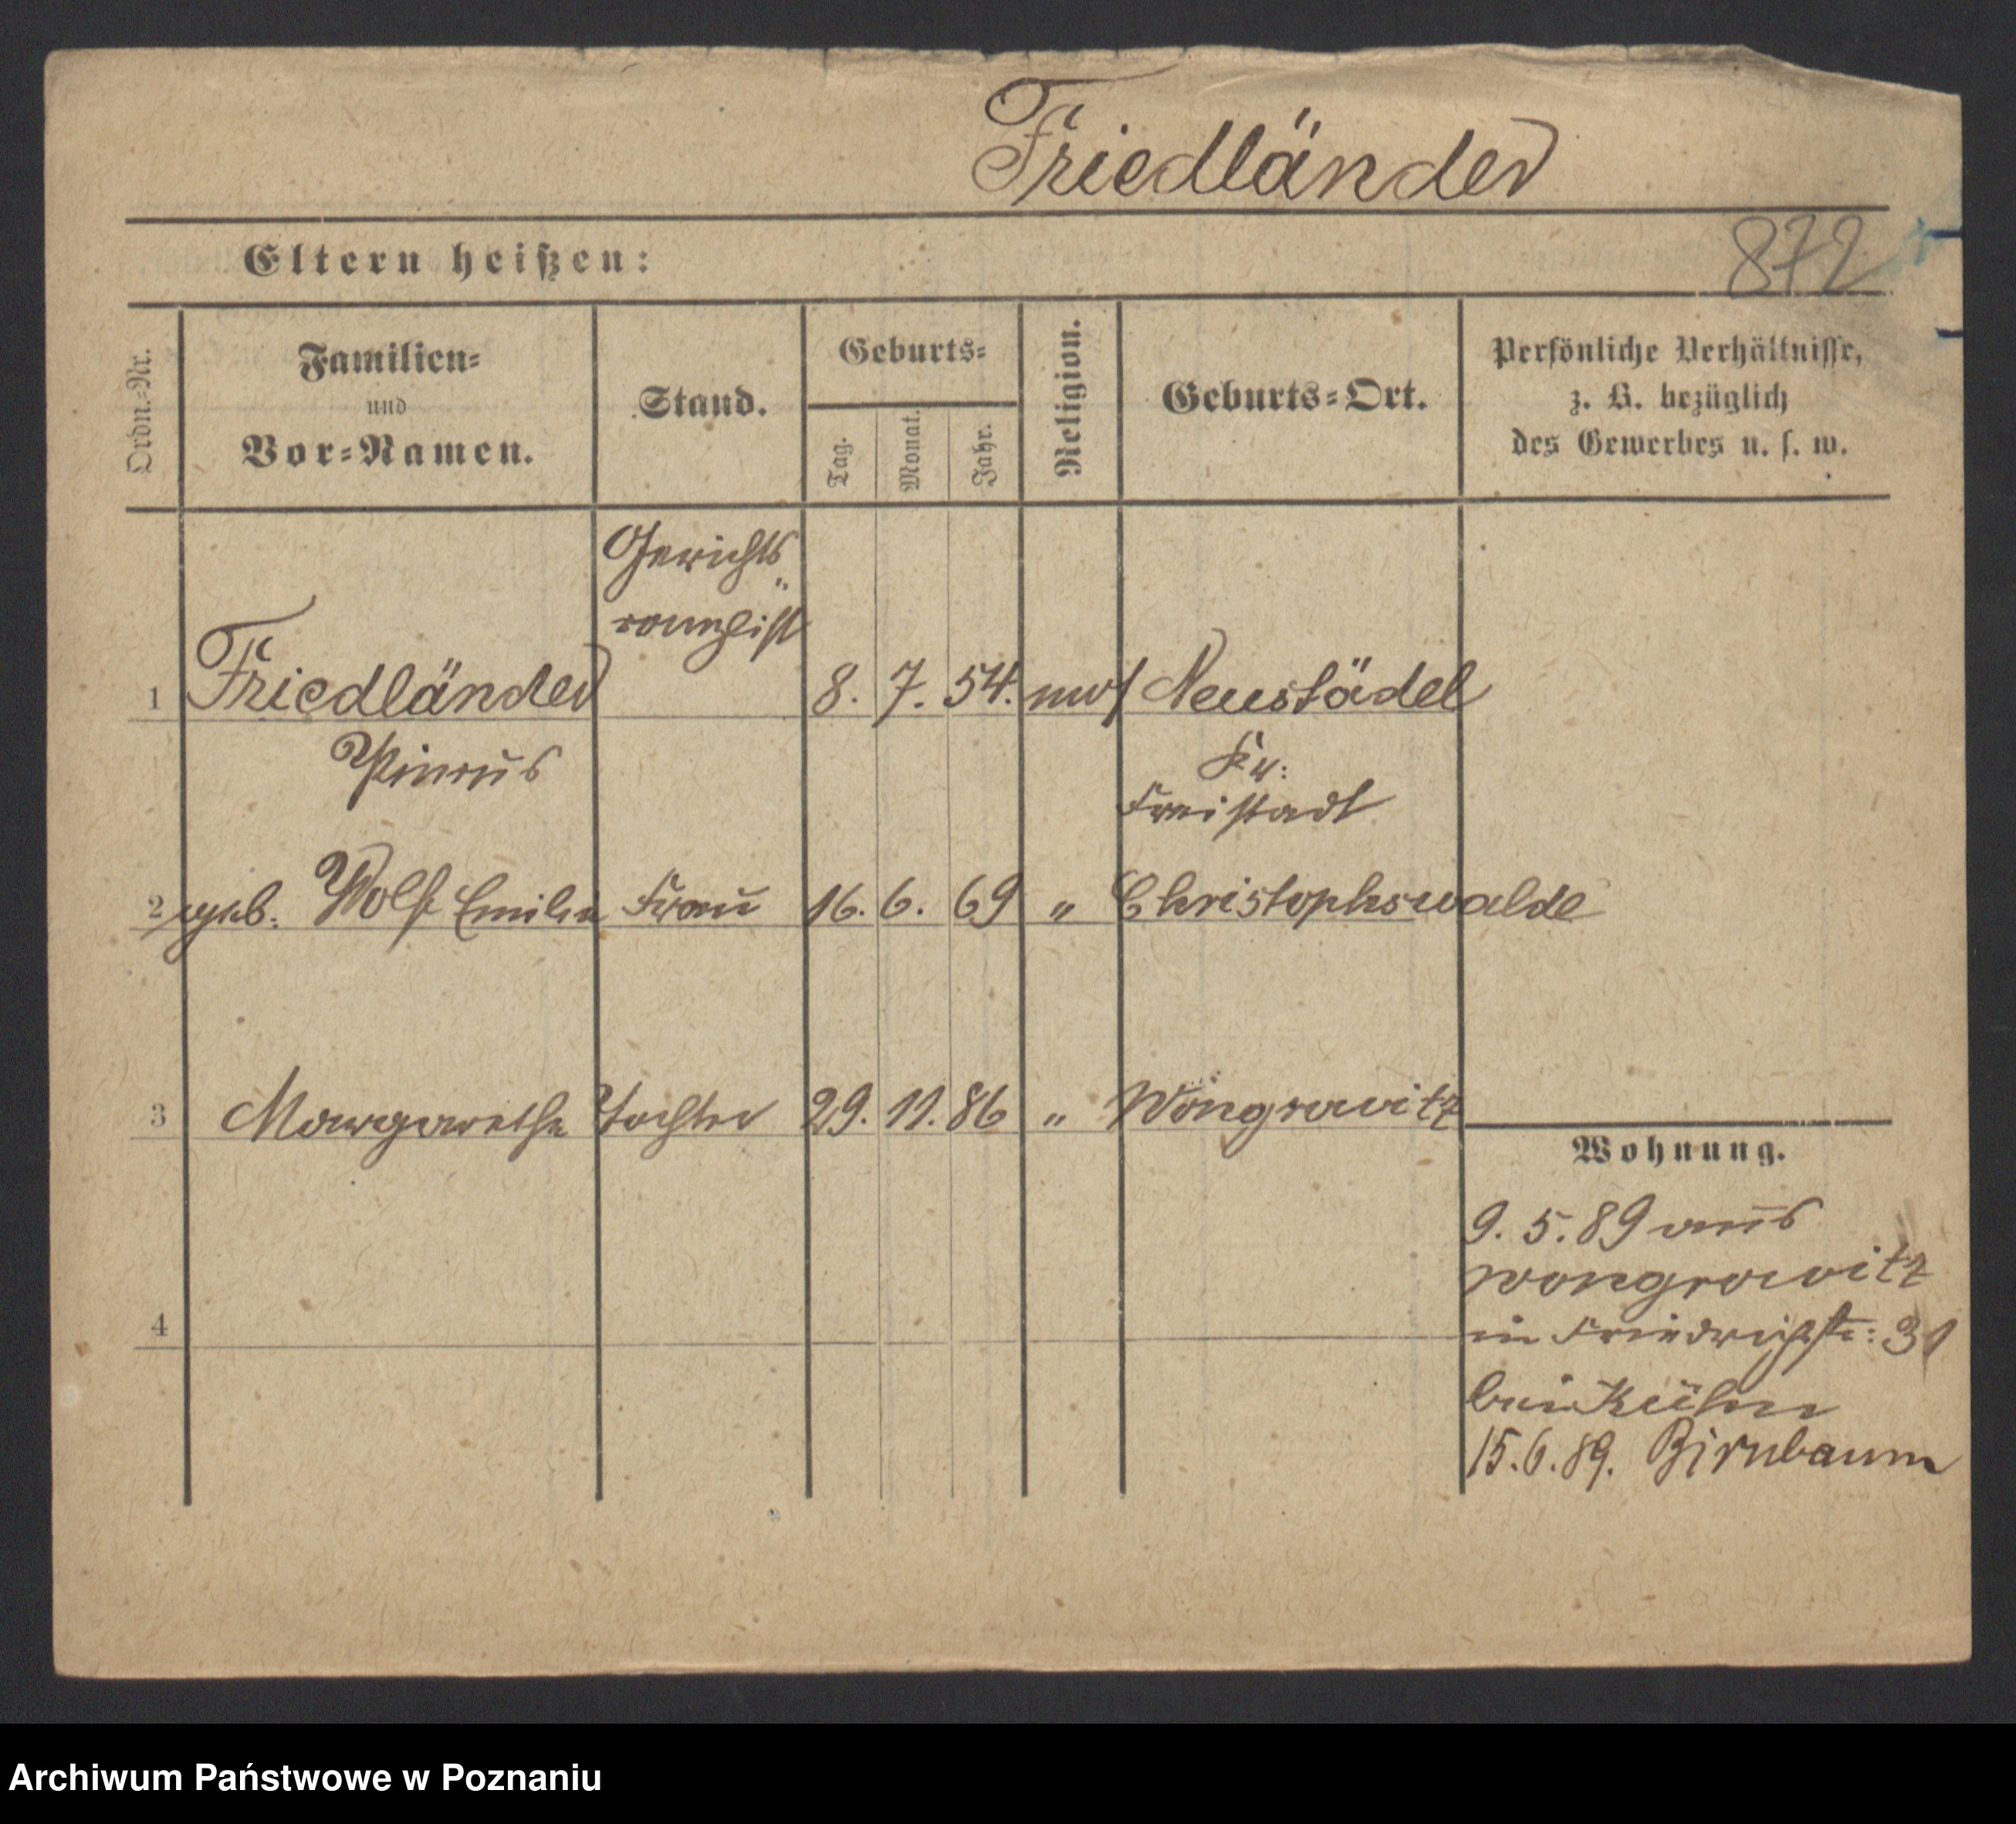 Friedländer
872
Eltern heißen:
Ordn.=Nr.
Familien=
und
Vor=Namen.
Stand.
Geburts=
Tag.
Monat.
Jahr.
Religion.
Geburts=Ort.
Persönliche Verhältnisse,
z. B. bezüglich
des Gewerbes u. s. w.
Gerichts
canzlist
1 Friedländer 8. 7. 54. mos Neustädel
Pincus Kr:
Freistadt
2 geb. Wolff Emilie Frau 16. 6. 69 " Christophswalde
3 Margarethe Tochter 29. 11. 86 " Wongrowitz
Wohnung.
9. 5. 89 aus
Wongrowitz
in Friedrichstr: 31
bei Kühn
4
15. 6. 89. Birnbaum
Archiwum Państwowe w Poznaniu